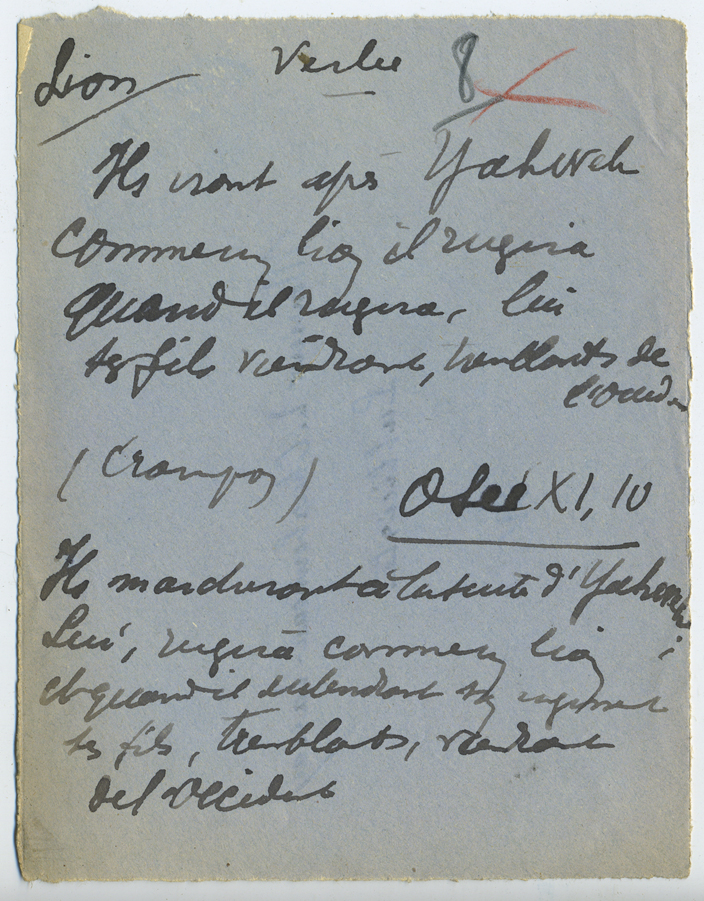 Lion Verbe 8
Ils iront après Yahweh
comme un lion il rugira
Quand il rugira, lui
ses fils viendront, tremblants de
l'occid.
(Crampon) Osée XI, 10
Ils marcheront à la suite d'Yahweh
Lui, rugira comme un lion ;
et quand il entendront son rugissement
ses fils, tremblants, viendront
de l'occident